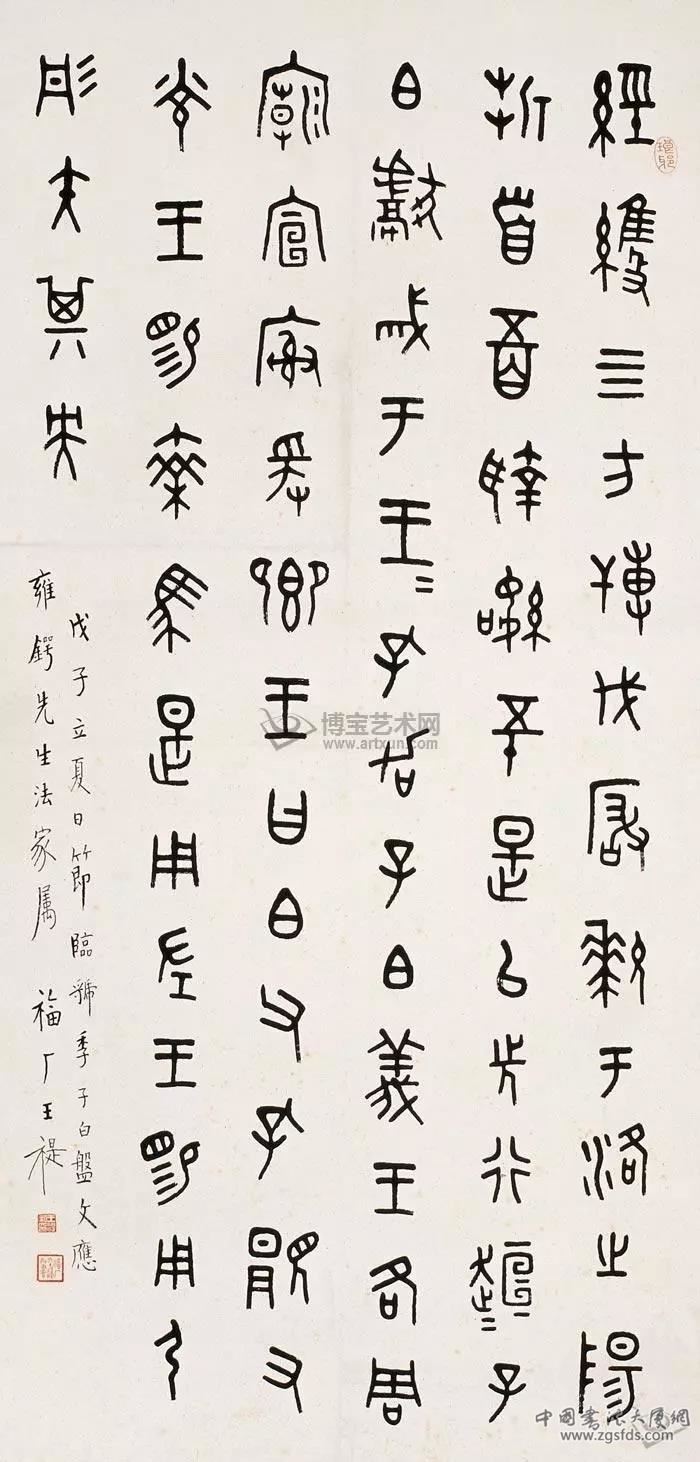 經維四方搏伐玁狁于洛之陽
折首五百執訊五十是以先行桓=子
白獻馘于王=孔加子白義王各周
廟宣榭爰鄉王曰白父孔顯又
光王賜乘馬是用左王賜用弓
彤矢其央
戊子立夏日節臨虢季子白盤文應
雍鍔先生法家属 福厂王禔
博宝艺术网
www.artxun.com
中國書法大廈網
www.zgsfds.com